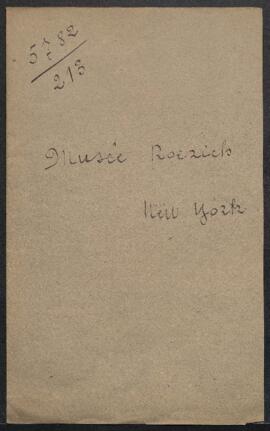 213
Musée Roerich
New York